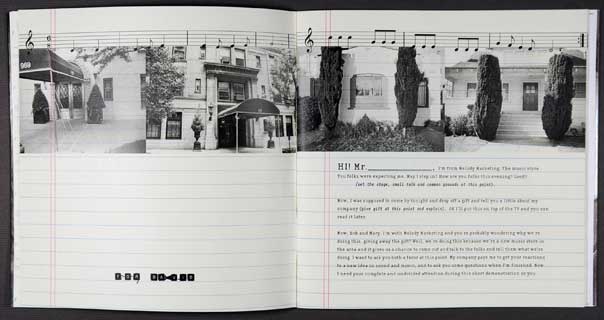 969
6
HI! Mr. I'm from Melody Marketing. The music store
You folks were expecting me. May I step in? How are you folks this evening? Good!
(set the stage, small talk and common grounds at this point).
Now, I was supposed to come by tonight and drop off a gift and tell you a little about my
company (give gift at this point and explain). OK I'll put this on top of the TV and you can
read it later.
Now, Bob and Mary, I'm with Melody Marketing and you're probably wondering why we're
doing this, giving away the gift? Well, we're doing this because we're a new music store in
the area and it gives us a chance to come out and talk to the folks and tell them what we're
doing. I want to ask you both a favor at this point. My company pays me to get your reactions
to a new idea on sound and music, and to ask you some questions when I'm finished. Now,
I need your complete and undivided attention during this short demonstration so you